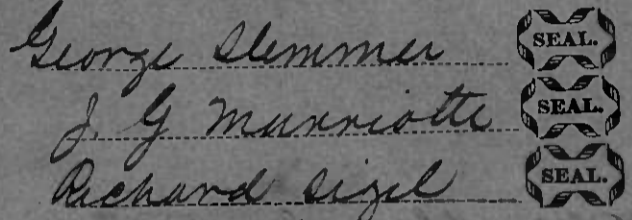 George Slemmer SEAL.
J. G Marriotte SEAL.
Richard Sigel SEAL.